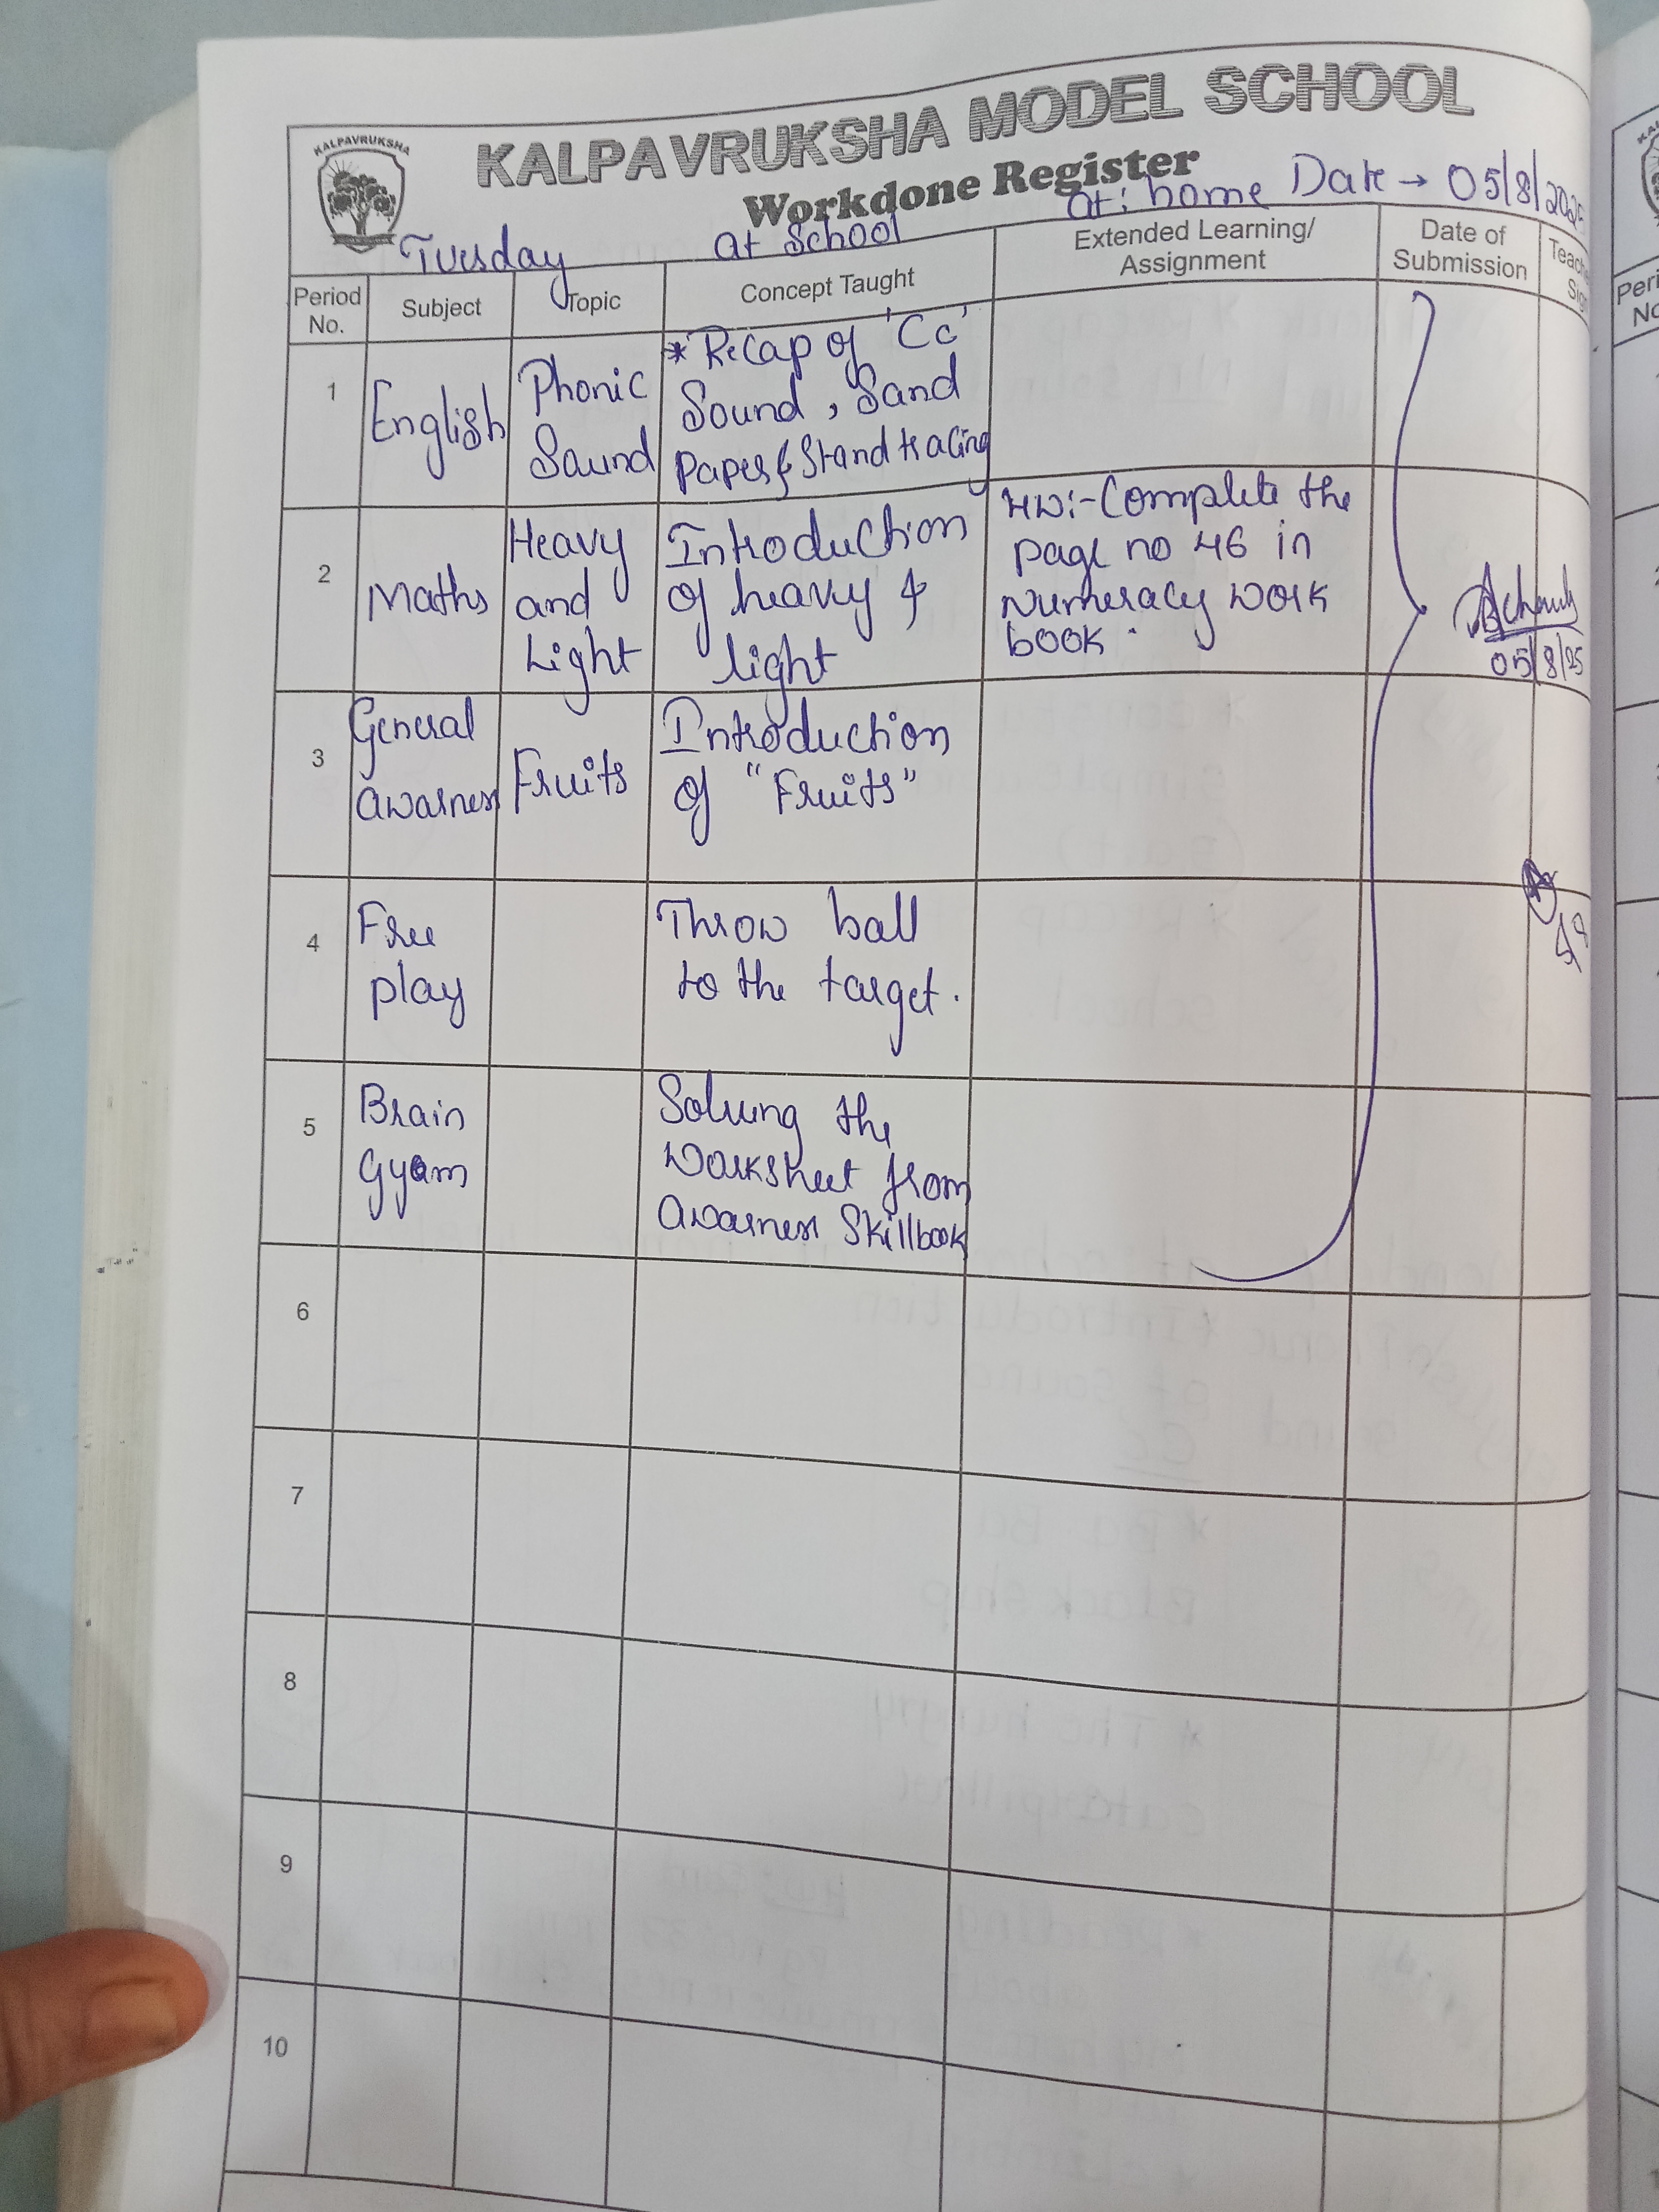 KALPAVRUKSHA
KALPAVRUKSHA MODEL SCHOOL
Workdone Register
Tuesday
at School
at: home
Date → 05/8/2025
Period No.
Subject
Topic
Concept Taught
Extended Learning/
Assignment
Date of
Submission
1
English
Phonic
Saund
* Recap of 'Cc'
Sound, Sand
Paper & Stand tracing
2
Maths
Heavy
and
Light
Introduction
of heavy &
light
HW:- Complete the
page no 46 in
Numeracy work
book.
05/8/25
3
General
awarness
Fruits
Introduction
of "Fruits"
4
Free
play
Throw ball
to the target.
5
Brain
Gyam
Solving the
worksheet from
awarness Skillbook
6
7
8
9
10